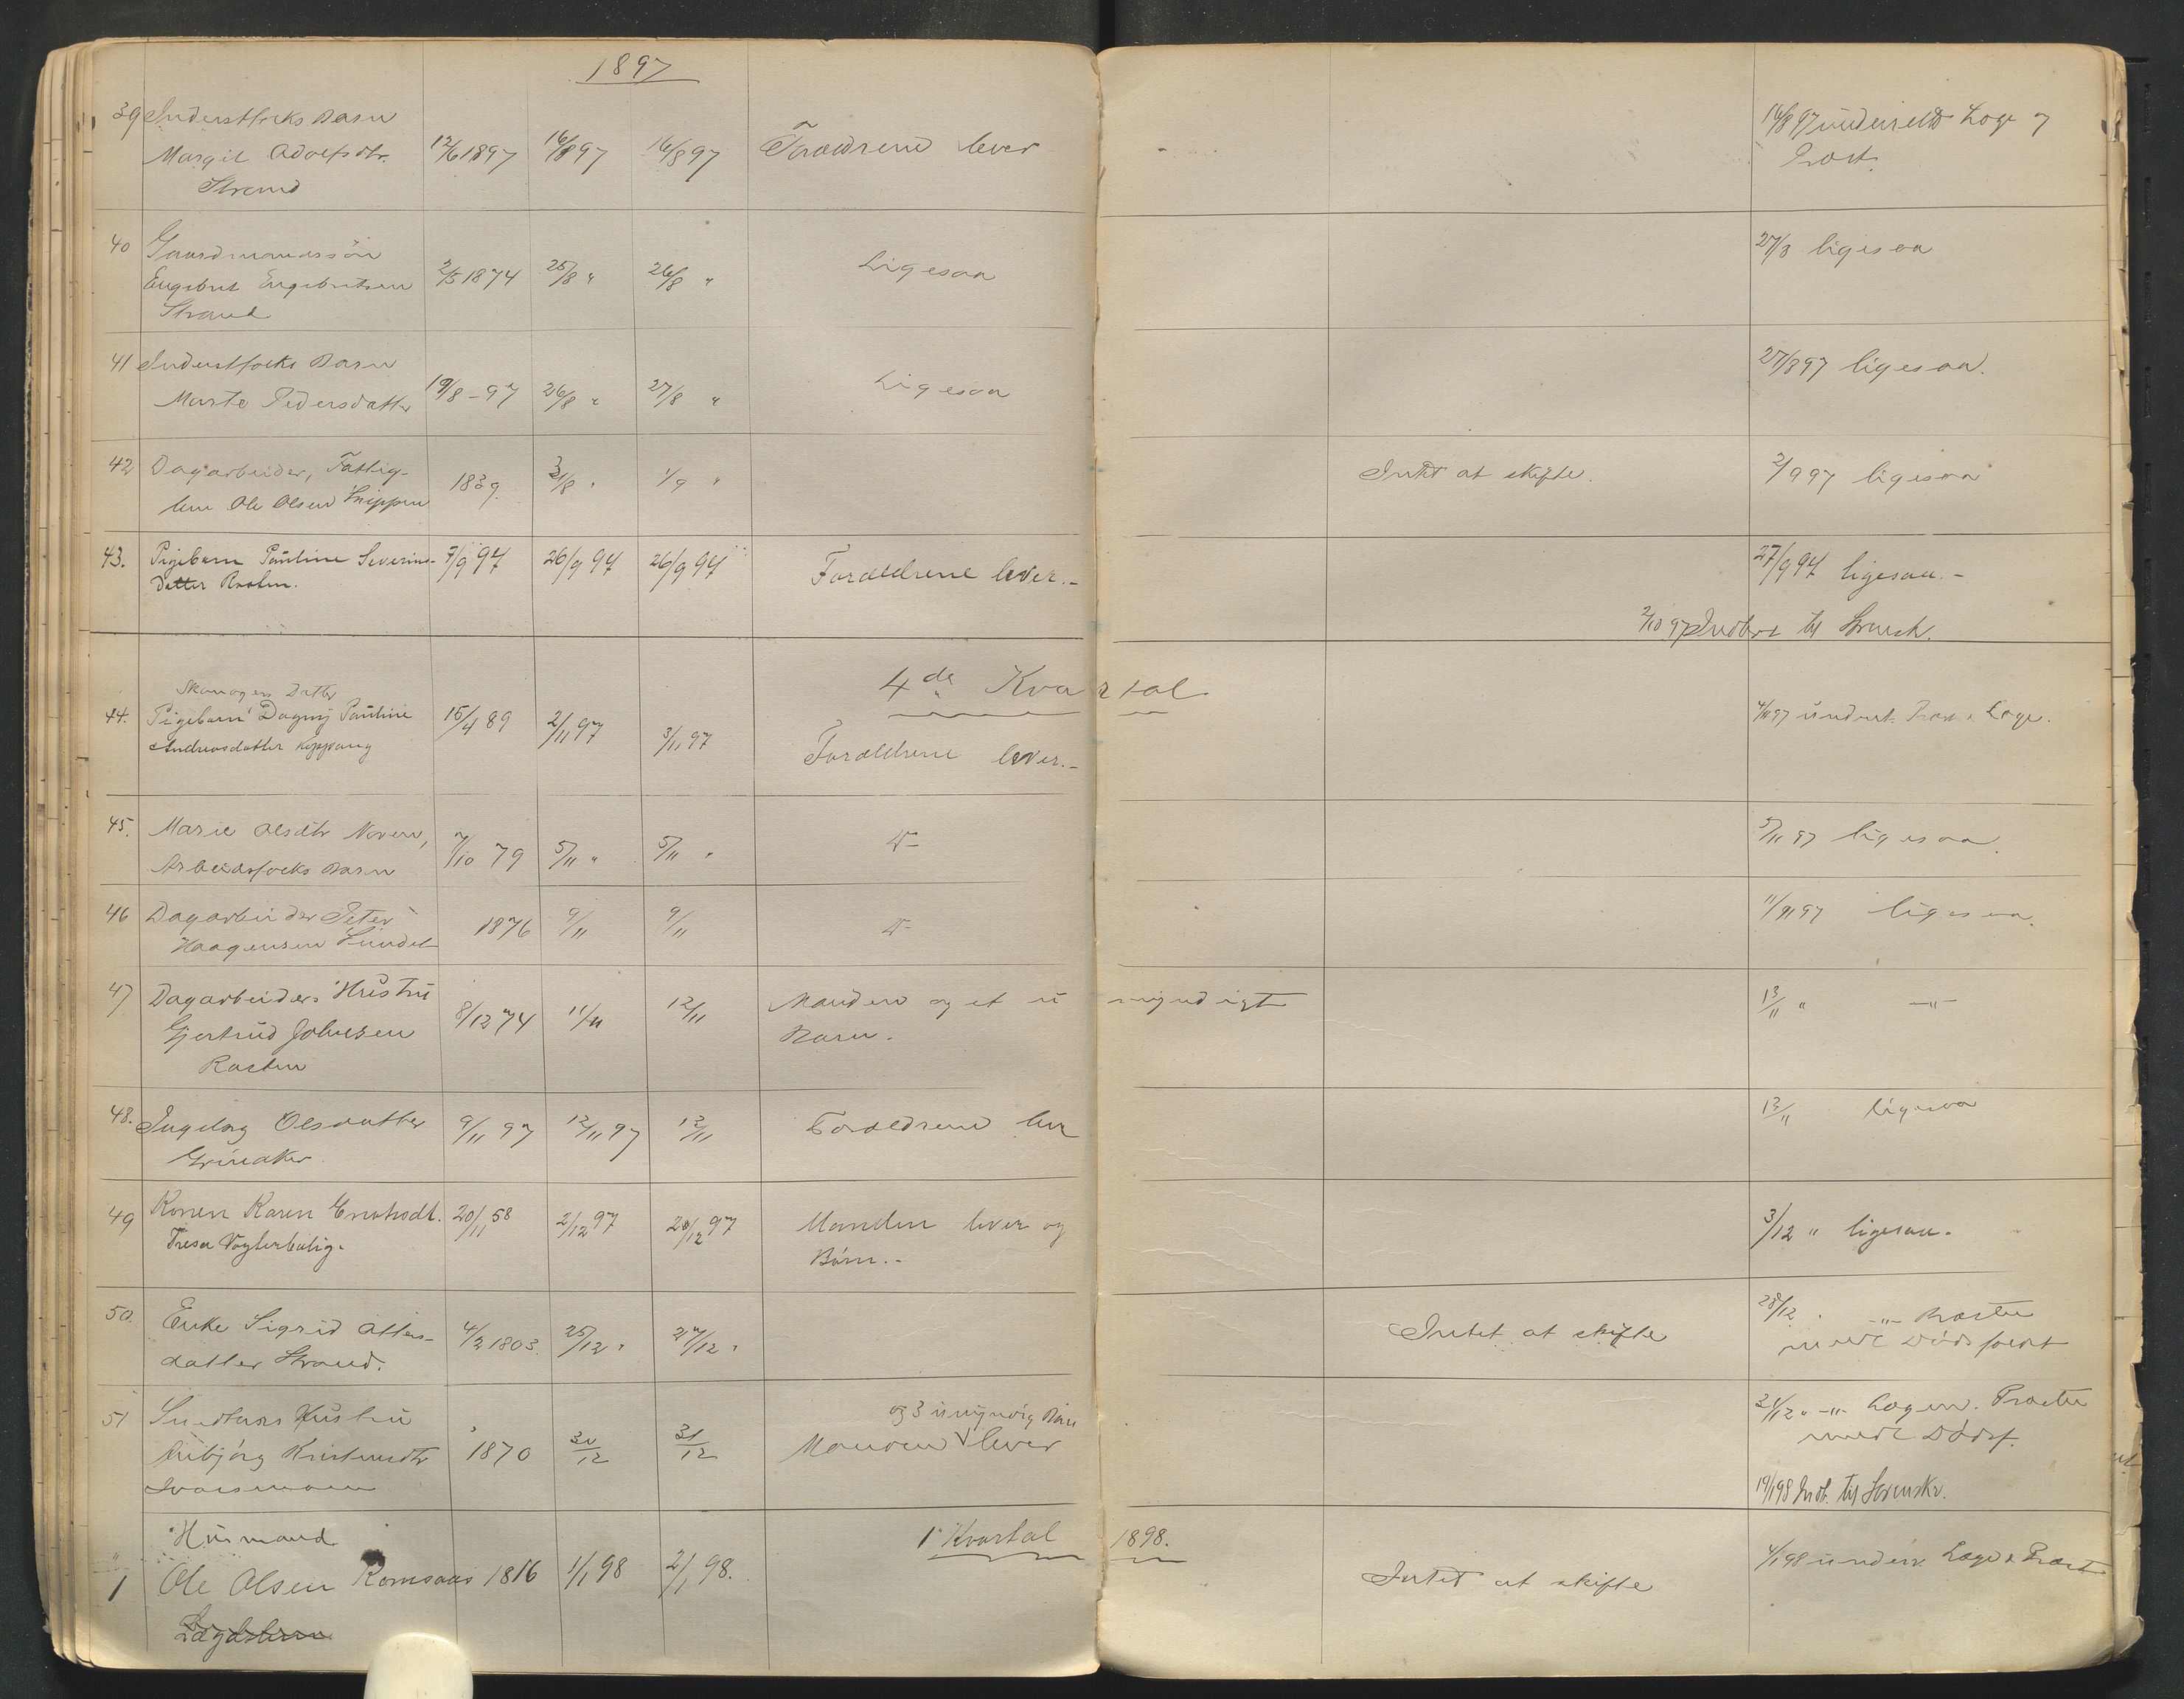 1897
39 Inderstfolks Barn
Margit Adolfsdtr.
Strand
12/6 1897 16/8 97 16/8 97 Forældrene lever
16/8 97 underrettet Læge og
Præst.
40 Gaardmandssøn
Engebret Engebretsen
Strand
2/5 1874 25/8 " 26/8 " Ligesaa
27/8 ligesaa
41 Inderstfolks Barn
Marte Pedersdatter
19/8 - 97 26/8 " 27/8 " Ligesaa
27/8 97 ligesaa.
42 Dagarbeider, Fattig-
lem Ole Olsen Snippen
1839 31/8 " 1/9 "
Intet at skifte.
2/9 97 ligesaa
43. Pigebarn Pauline Severins-
datter
7/9 97 26/9 97 26/9 97 Forældrene lever.-
27/9 97 ligesaa.-
2/10 97 Indb. til Sorensk.
4de Kvartal
Skovogers Datter
44. Pigebarn Dagny Pauline
Andreasdatter Koppang
15/4 89 2/11 97 3/11 97
Forældrene lever.-
4/11 97 underret. Præst & Læge.
45. Marie Olsdtr Noren,
Arbeidsfolks Barn
7/10 79 5/11 " 5/11 " D-
5/11 97 ligesaa.
46 Dagarbeider Peter
Haagensen Sundet
1876 9/11 9/11 D-
11/11 97 ligesaa.
47 Dagarbeiders Hustru
Gjertrud Johnsen
Rasten
8/12 74 11/11 12/11 Manden og et umyndigt
Barn.
13/11 " -"-
48. Ingeborg Olsdatter
Grinaker
9/11 97 12/11 97 12/11 Forældrene lever
13/11 ligesaa
49 Konen Karen Enoksdt.
Tresa Vogterbolig.
20/11 58 2/12 97 20/12 97 Manden lever og
Børn.-
3/12 " ligesaa.
50. Enke Sigrid Otters-
datter Strand.
4/2 1803. 25/12 " 27/12 "
Intet at skifte
28/12 " -"- Præsten
med Dødsfald
51 Hustru
Anbjørg Kristensdtr
1870 30/12 31/12
og 3 umyndig Børn
Manden lever
31/12 " -"- Lægen. Præsten
med Dødsf.
19/1 98 Indb. til Sorenskr.
1 Kvartal 1898.
Husmand
1 Ole Olsen Romsaas 1816 1/1 98 2/1 98.
Lægdslem
Intet at skifte
4/1 98 underr. Læge & Præst